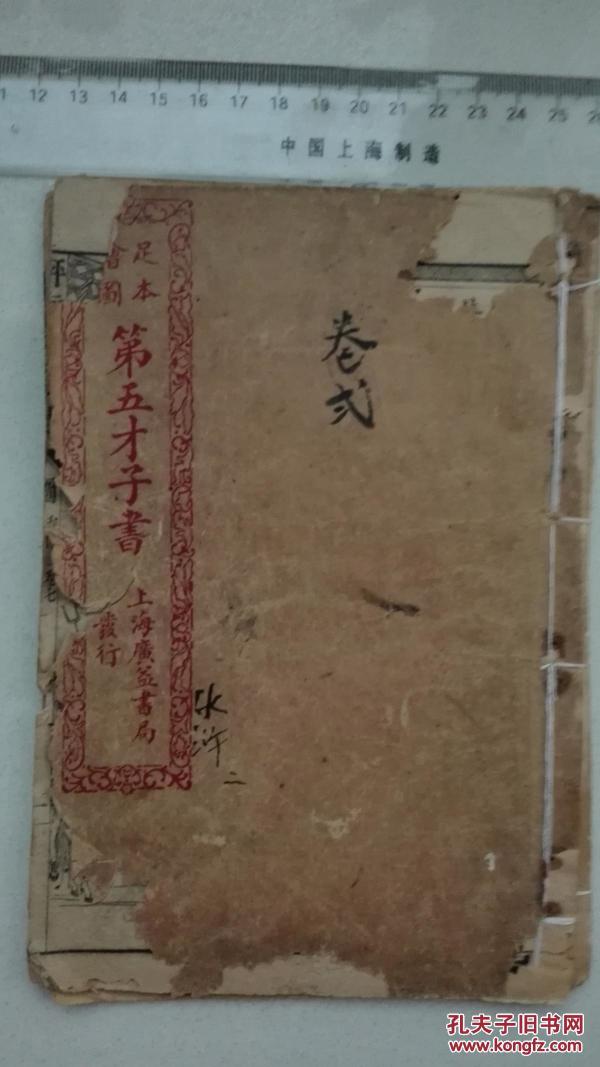 11 12 13 14 15 16 17 18 19 20 21 22 23 24 25 26
中国上海制造
足本
會圖
第五才子書
上海廣益書局
發行
卷弍
水浒
二
孔夫子旧书网
www.kongfz.com